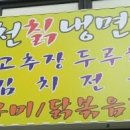 천칡냉면
고추장두루
김치전
구이/닭볶음